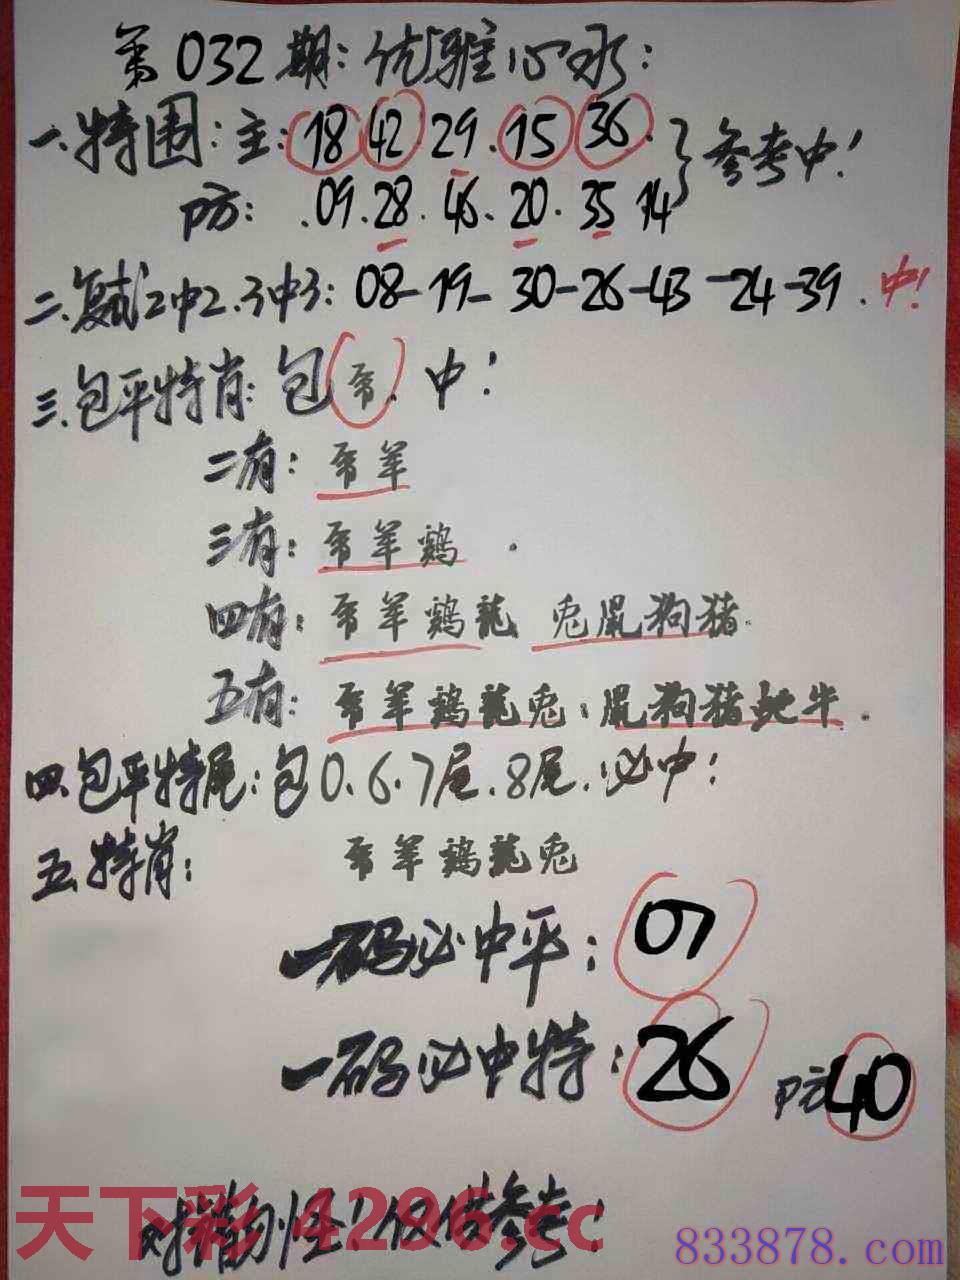 第032期:优雅心水:
一.特围:主:18 42 29.15 36.}参考中!
防:.09.28.46.20.35 14
二.复试2中2.3中3:08-19-30-26-43-24-39.中!
三.包平特肖:包 . 中!
二有: 羊
三有: 羊鷄.
四有: 羊鷄龍 兎鼠狗猪.
五有: 羊鷄龍兎.鼠狗猪蛇牛.
四.包平特尾:包0.6.7尾.8尾.必中!
五.特肖: 羊鷄龍兎
一码必中平: 07
一码必中特: 26 防40
对错勿怪!仅供参考!
天下彩 4296.cc
833878.com